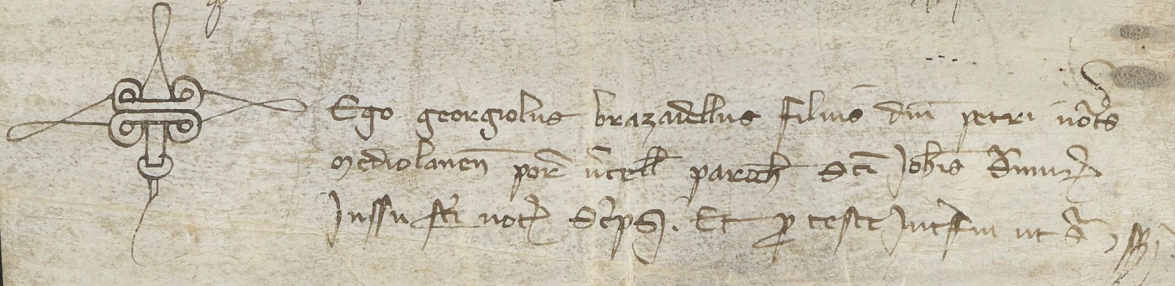 Ego georgiolus brazadellus filius dni petri nots
mediolanen por vercell paroch Sci Johis
Jussu scti not Scrips. Et p teste Interfui ut sa